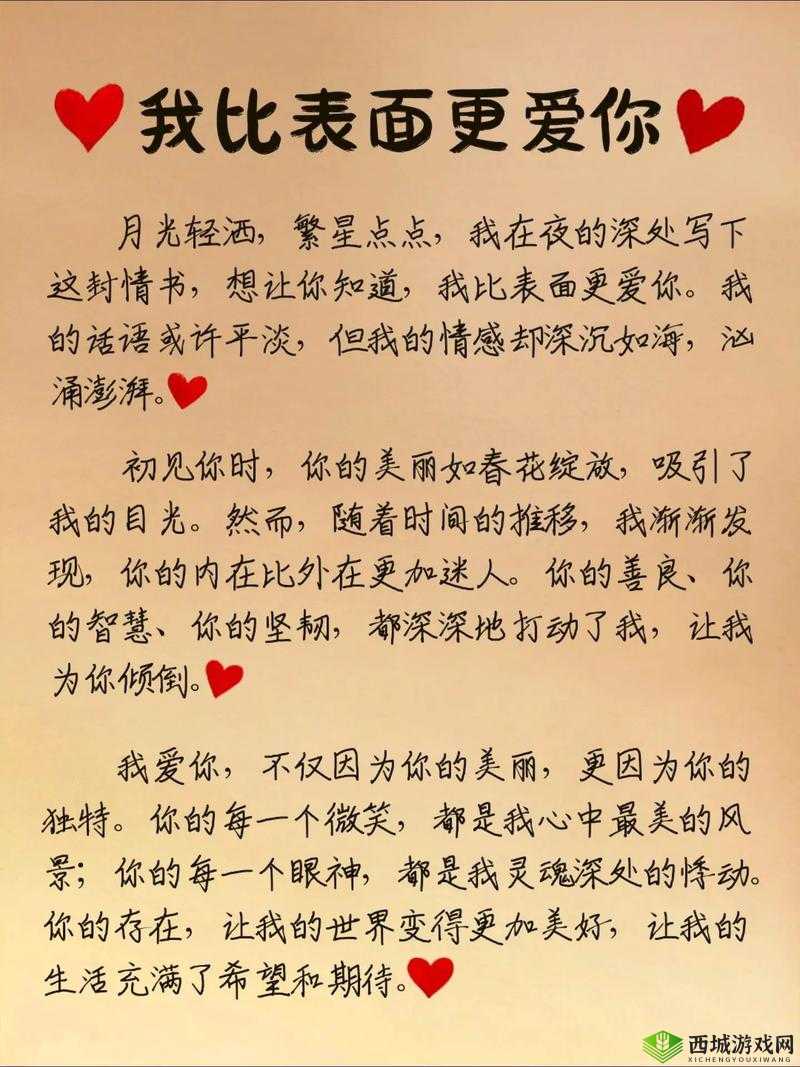 我比表面更爱你
月光轻洒，繁星点点，我在夜的深处写下
这封情书，想让你知道，我比表面更爱你。我
的话语或许平淡，但我的情感却深沉如海，汹
涌澎湃。
初见你时，你的美丽如春花绽放，吸引了
我的目光。然而，随着时间的推移，我渐渐发
现，你的内在比外在更加迷人。你的善良、你
的智慧、你的坚韧，都深深地打动了我，让我
为你倾倒。
我爱你，不仅因为你的美丽，更因为你的
独特。你的每一个微笑，都是我心中最美的风
景；你的每一个眼神，都是我灵魂深处的悸动。
你的存在，让我的世界变得更加美好，让我的
生活充满了希望和期待。
西城游戏网
XICHENGYOUXIWANG